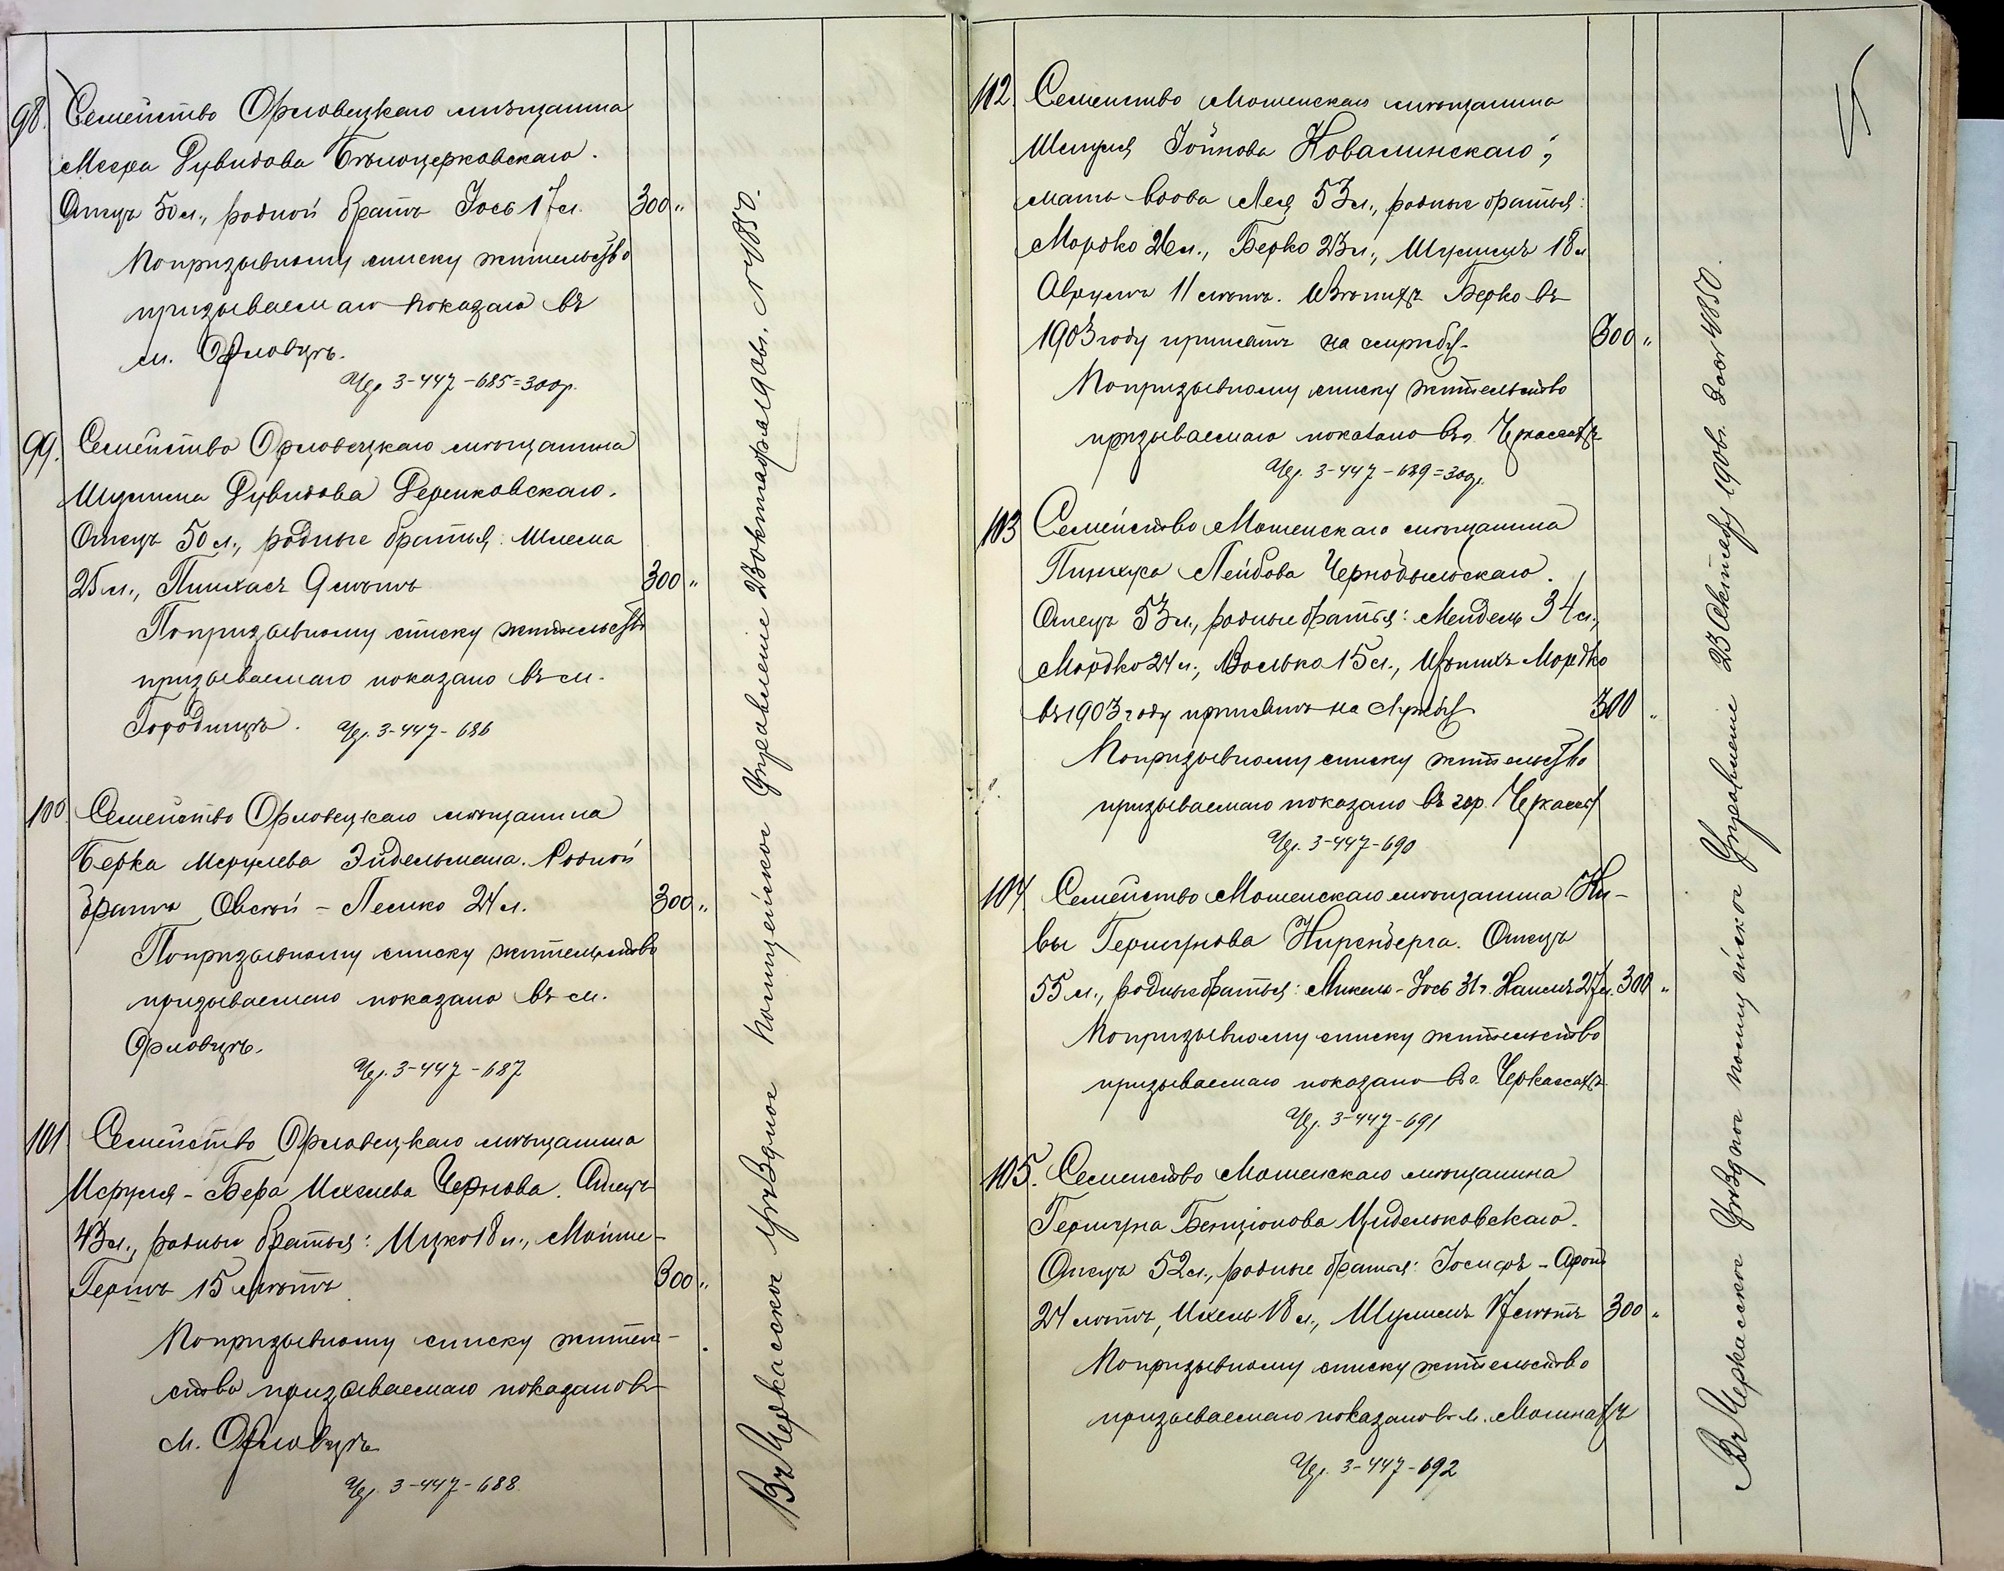 98. Семейство Орловецкаго мѣщанина
Мсера Дувидова Бѣлоцерковскаго.
Отецъ 50 л., родной братъ Іось 17 л. 300 "
По призывному списку жительство
призываемаго показано въ
м. Орловцѣ.
Чер. 3-447-685=300р.
99. Семейство Орловецкаго мѣщанина
Шулима Дувидова Деренковскаго.
Отецъ 50 л., родные братья: Шлема
25 л., Пинхасъ 9 лѣтъ 300 "
По призывному списку жительство
призываемаго показано въ м.
Городищѣ. Чер. 3-447-686
100 Семейство Орловецкаго мѣщанина
Берка Мсрулева Эйдельмана. Родной
братъ Овсей - Лейко 24 л. 300 "
По призывному списку жительство
призываемаго показано въ м.
Орловцѣ.
Чер. 3-447-687
101 Семейство Орловецкаго мѣщанина
Исруля - Бера Ихелева Чернова. Отецъ
43 л., родные братья: Ицко 18 л., Мойше-
Гершъ 15 лѣтъ 300 "
По призывному списку житель-
ство призываемаго показано въ
м. Орловцѣ
Чер. 3-447-688
Въ Черкасское Уѣздное Полицейское Управленіе 23 октября 1906 г. 4850.
102. Семейство Мошенскаго мѣщанина
Шмуля Іойнова Ковалинскаго;
мать вдова Лея 53 л., родные братья:
Мордко 26 л., Берко 23 л., Шулимъ 18 л
Аврумъ 11 лѣтъ. Изъ нихъ Берко въ
1903 году принятъ на службу. 300 "
По призывному списку жительство
призываемаго показано въ г. Черкассахъ
Чер. 3-447-689=300р.
103 Семейство Мошенскаго мѣщанина
Пинхуса Лейбова Чернобыльскаго.
Отецъ 53 л., родные братья: Мендель 34 л.,
Мордко 24 л., Волько 15 л., Изъ нихъ Мордко
въ 1903 году принятъ на службу 300 "
По призывному списку жительство
призываемаго показано въ гор. Черкассы
Чер. 3-447-690
104. Семейство Мошенскаго мѣщанина Ки-
вы Гершунова Ниренберга. Отецъ
55 л., родные братья: Микель - Іось 31 г. Хаимъ 27 л. 300 "
По призывному списку жительство
призываемаго показано въ г. Черкассахъ
Чер. 3-447-691
105. Семейство Мошенскаго мѣщанина
Гершуна Бенціонова Цидельковскаго.
Отецъ 52 л., родные братья: Іосифъ - Аронъ
24 лѣтъ, Ихель 18 л., Шулимъ 17 лѣтъ 300 "
По призывному списку жительство
призываемаго показано въ м. Мошнахъ
Чер. 3-447-692
Въ Черкасское Уѣздное полицейское Управленіе 23 Октября 1906 г. за № 4850.